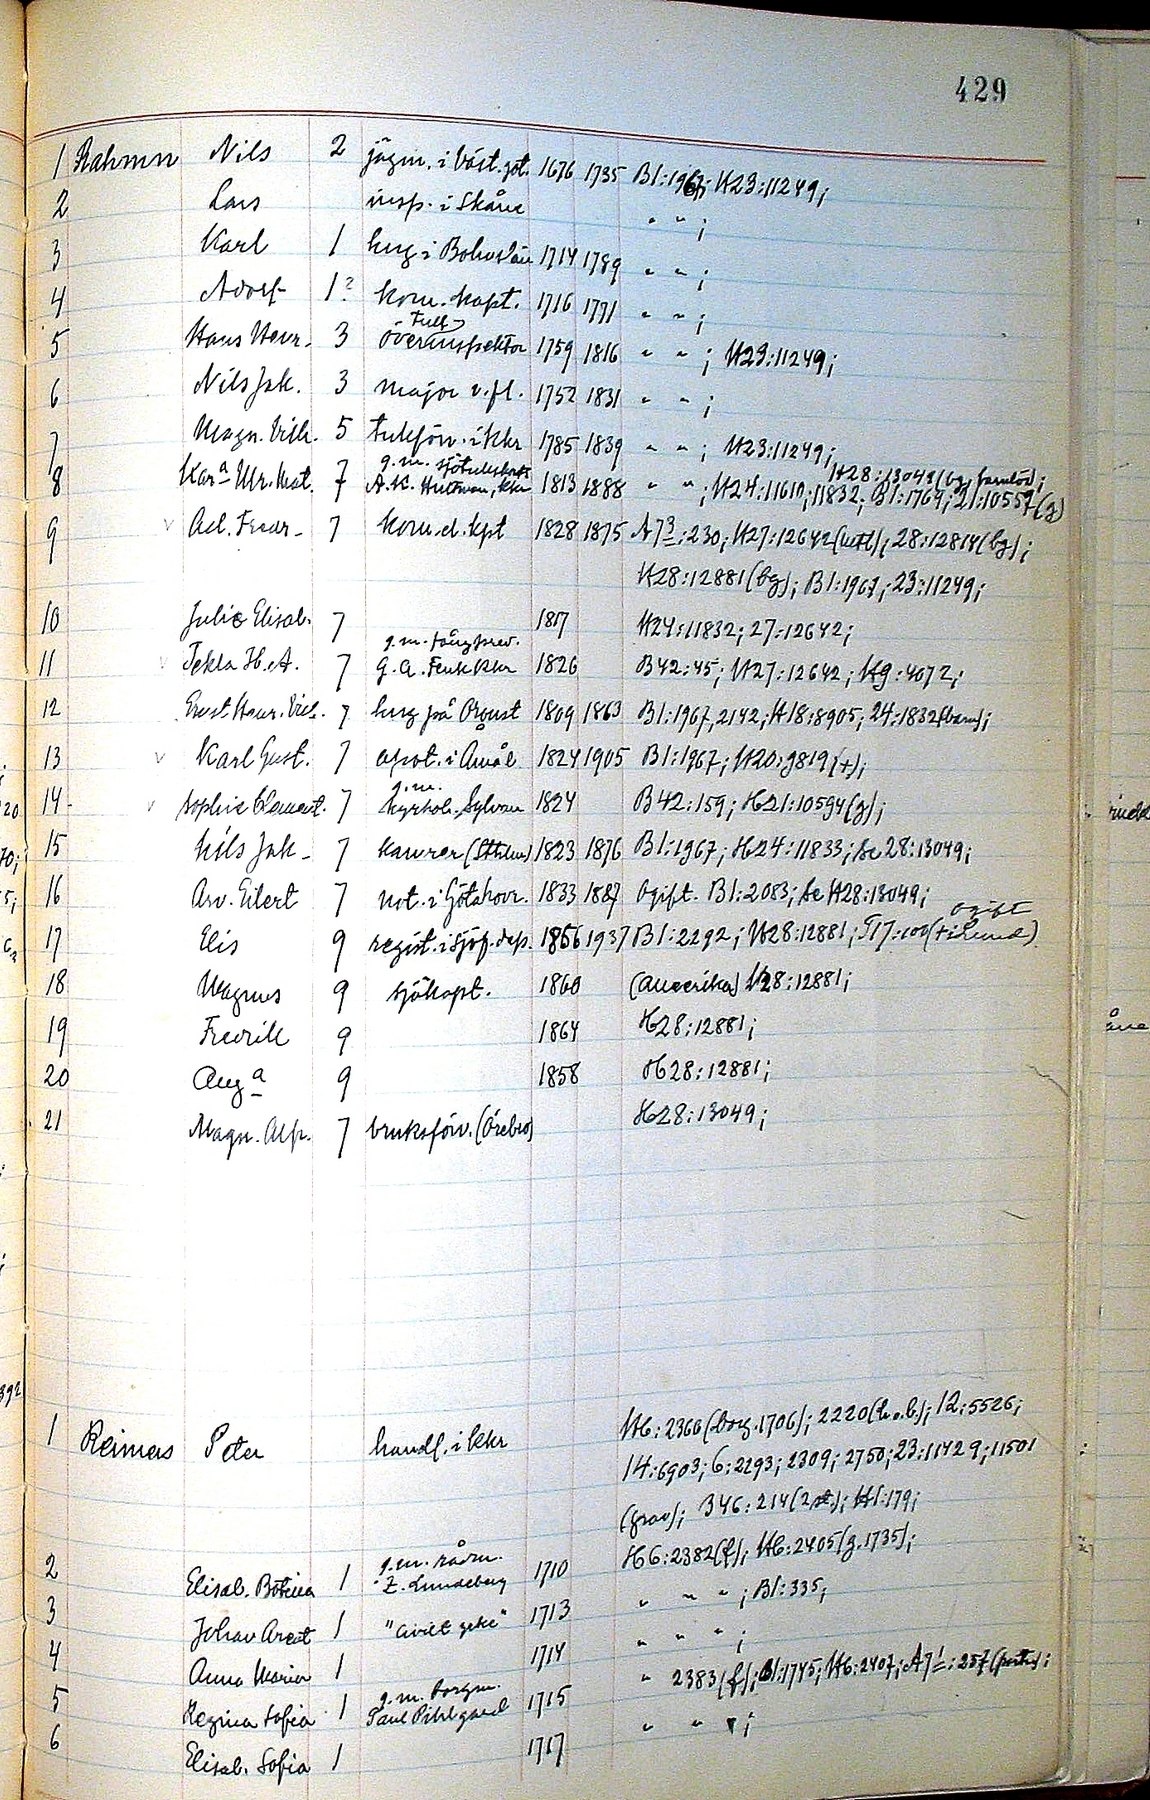 429
1 Rahmn Nils 2 jägm. i Väst.göt. 1676 1735 B1:1967; H23:11249;
2 Lars insp. i Skåne " " ;
3 Karl 1 krig i Bohuslän 1714 1789 " " ;
4 Adolf 1? kom. kapt. 1716 1771 " " ;
5 Hans Henr. 3 Tull överinspektor 1759 1816 " " ; H23:11249;
6 Nils Jak. 3 major v.fl. 1752 1831 " " ;
7 Magn. Vilh. 5 tullförv. i Kkr 1785 1839 " " ; H23:11249;
H28:13049 (bg, barnlös);
8 Kar<sup>a</sup> Ulr. Mat. 7 g.m. A.K. Hultman, Kkr 1813 1888 " " ; H24:11610; 11832; B1:1764; 21:10557 (g)
9 v Ad. Fredr. 7 kom.d. kpt 1828 1875 A7<sup>3</sup>:230; H27:12642; 28:12814 (bg);
H28:12881 (bg); B1:1967; 23:11249;
10 Julie Elisab. 7 1817 H24:11832; 27:12642;
11 v Tekla H.A. 7 g.m. fångpred. G.A. Fenk Kkr 1826 B42:45; H27:12642; H9:4072;
12 Ernst Henr. Vilh. 7 krig på Orqust 1809 1863 B1:1967, 2142; H18:8905; 24:1832 (barn);
13 v Karl Gust. 7 apot. i Åmål 1824 1905 B1:1967; H20:9819 (+);
14 v Sophie Clement. 7 g.m. kyrkoh. Sylvan 1824 B42:159; H21:10594 (g);
15 Nils Jak. 7 kamrer (Sthlm) 1823 1876 B1:1967; H24:11833; Se 28:13049;
16 Arv. Eilert 7 not. i Götahovr. 1833 1887 Ogift. B1:2083; Se H28:13049;
17 Elis 9 regist. i sjöf.dep. 1856 1937 B1:2292; H28:12881; ogift
18 Magnus 9 sjökapt. 1860 (Amerika) H28:12881;
19 Fredrik 9 1864 H28:12881;
20 Aug<sup>a</sup> 9 1858 H28:12881;
21 Magn. Alf. 7 bruksförv. (Örebro) H28:13049;
1 Reimers Peter handl. i Kkr H6:2366 (borg. 1706); 2220 (h.o.b.); 12:5526;
14:6903; 6:2293; 2309; 2750; 23:11429; 11501
(grav); B46:214 (2st.); H1:179;
2 Elisab. Botina 1 g.m. rådm. Z. Lundeberg 1710 H6:2382 (f); H6:2405 (g. 1735);
3 Johan Arent 1 "civilt yrke" 1713 " " " ; B1:335;
4 Anna Maria 1 1714 " " " ;
5 Regina Sofia 1 g.m. borgm. Paul Pihlgard 1715 " 2383 (f); B1:1745; H6:2407; A7<sup>1</sup>:257 (portr.);
6 Elisab. Sofia 1 1717 " " " ;